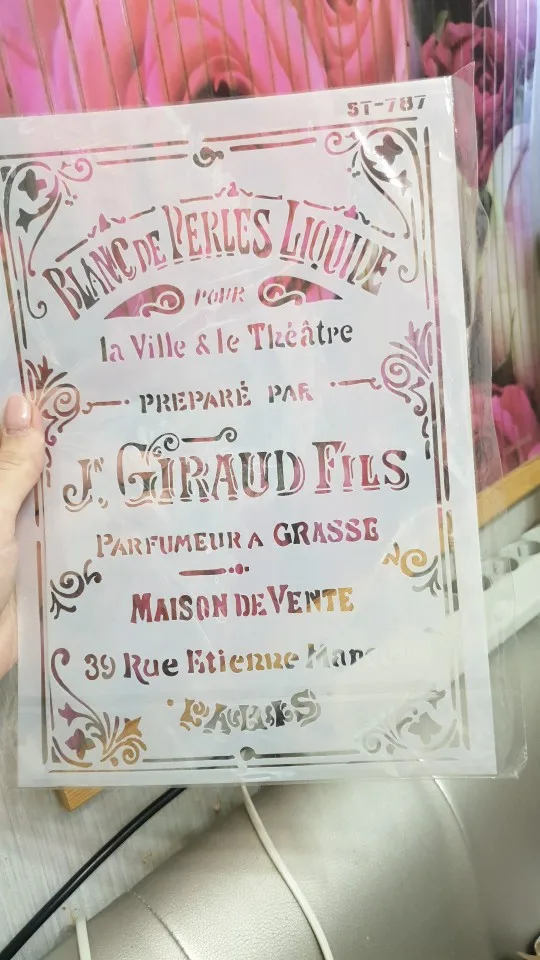 ST-787
BLANC DE PERLES LIQUIDE
POUR
la Ville & le Théâtre
PREPARÉ PAR
JN. GIRAUD FILS
PARFUMEUR A GRASSE
MAISON DE VENTE
39 Rue Etienne